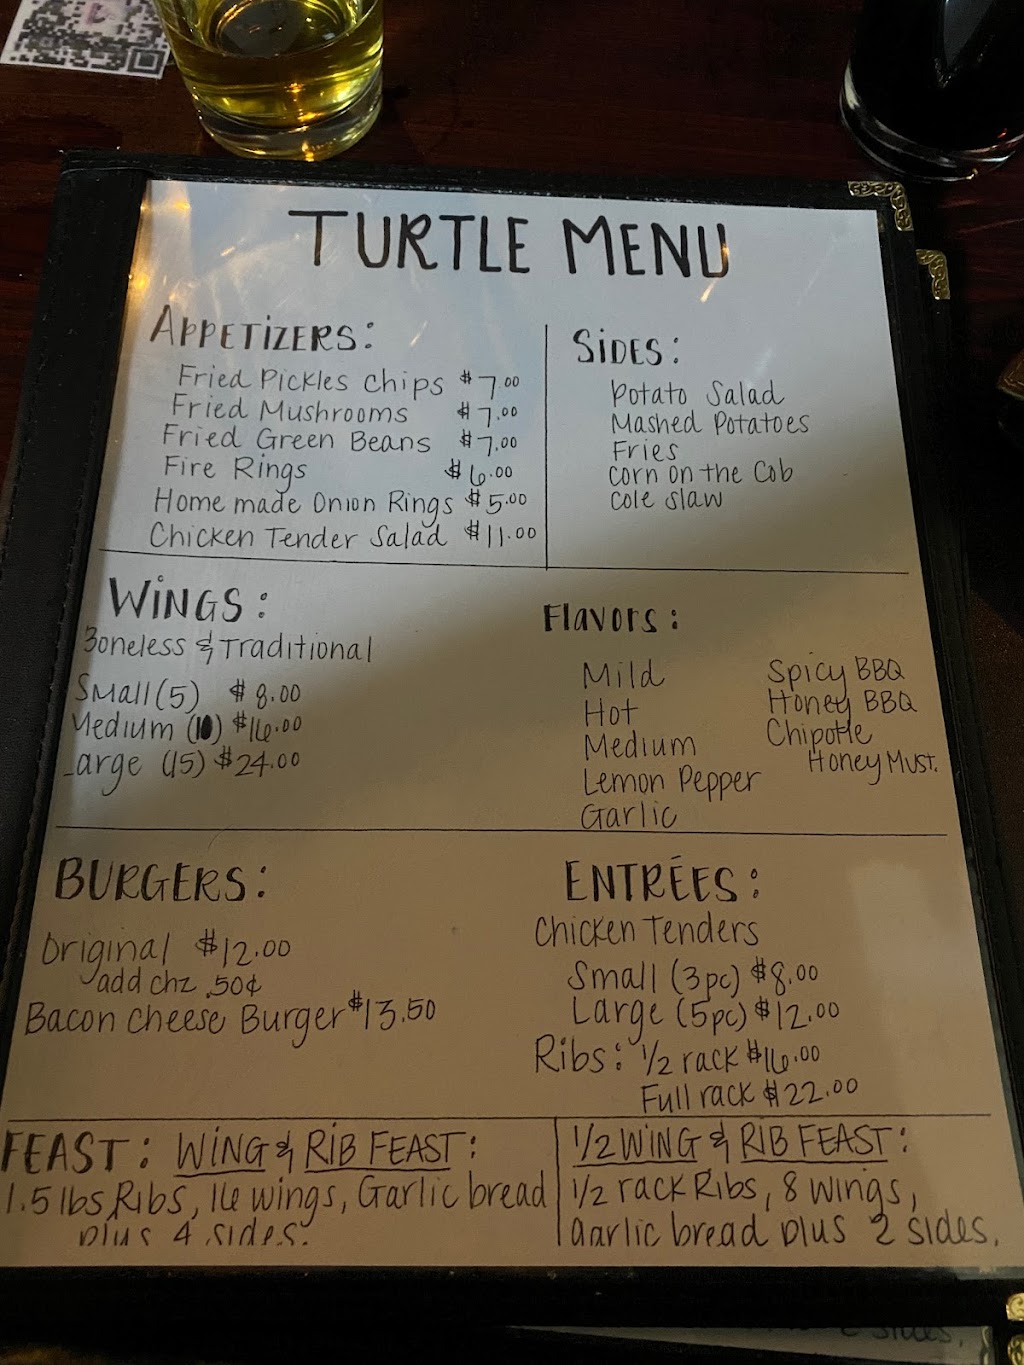 TURTLE MENU
APPETIZERS:
Fried Pickles Chips $7.00
Fried Mushrooms $7.00
Fried Green Beans $7.00
Fire Rings $6.00
Home made Onion Rings $5.00
Chicken Tender Salad $11.00
SIDES:
Potato Salad
Mashed Potatoes
Fries
Corn on the Cob
Cole Slaw
WINGS:
Boneless & Traditional
Small (5) $8.00
Medium (10) $16.00
Large (15) $24.00
Flavors:
Mild
Hot
Medium
Lemon Pepper
Garlic
Spicy BBQ
Honey BBQ
Chipotle
Honey Must.
BURGERS:
Original $12.00
add chz .50¢
Bacon Cheese Burger $13.50
ENTRÉES:
Chicken Tenders
Small (3pc) $8.00
Large (5pc) $12.00
Ribs: 1/2 rack $16.00
Full rack $22.00
FEAST: WING & RIB FEAST:
1.5 lbs Ribs, 16 wings, Garlic bread
plus 4 sides.
1/2 WING & RIB FEAST:
1/2 rack Ribs, 8 wings,
Garlic bread plus 2 sides.
2 sides.